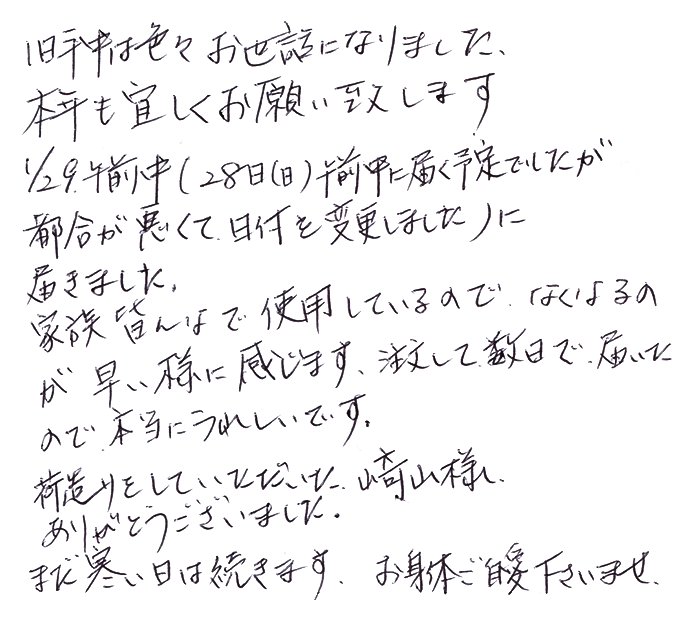 旧年中は色々お世話になりました、
本年も宜しくお願い致します
1/29.午前中(28日(日)午前中に届く予定でしたが
都合が悪くて、日付を変更しました)に
届きました。
家族皆んなで使用しているので、なくなるの
が早い様に感じます、注文して数日で届いた
ので本当にうれしいです。
荷造りをしていただいた、崎山様、
ありがとうございました。
まだ寒い日は続きます、お身体ご自愛下さいませ、